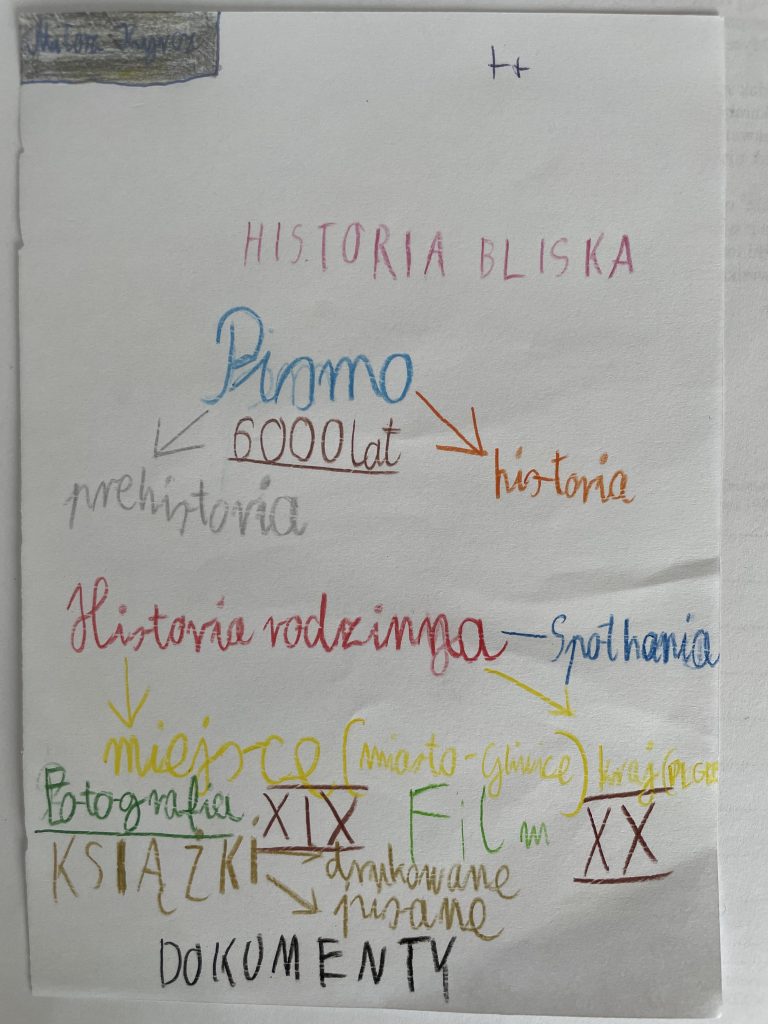 ++
HISTORIA BLISKA
Pismo
6000 lat
prehistoria
historia
Historia rodzinna — Spotkania
miejsce (miasto - Gliwice) kraj
Fotografia XIX Film XX
KSIĄŻKI drukowane
pisane
DOKUMENTY